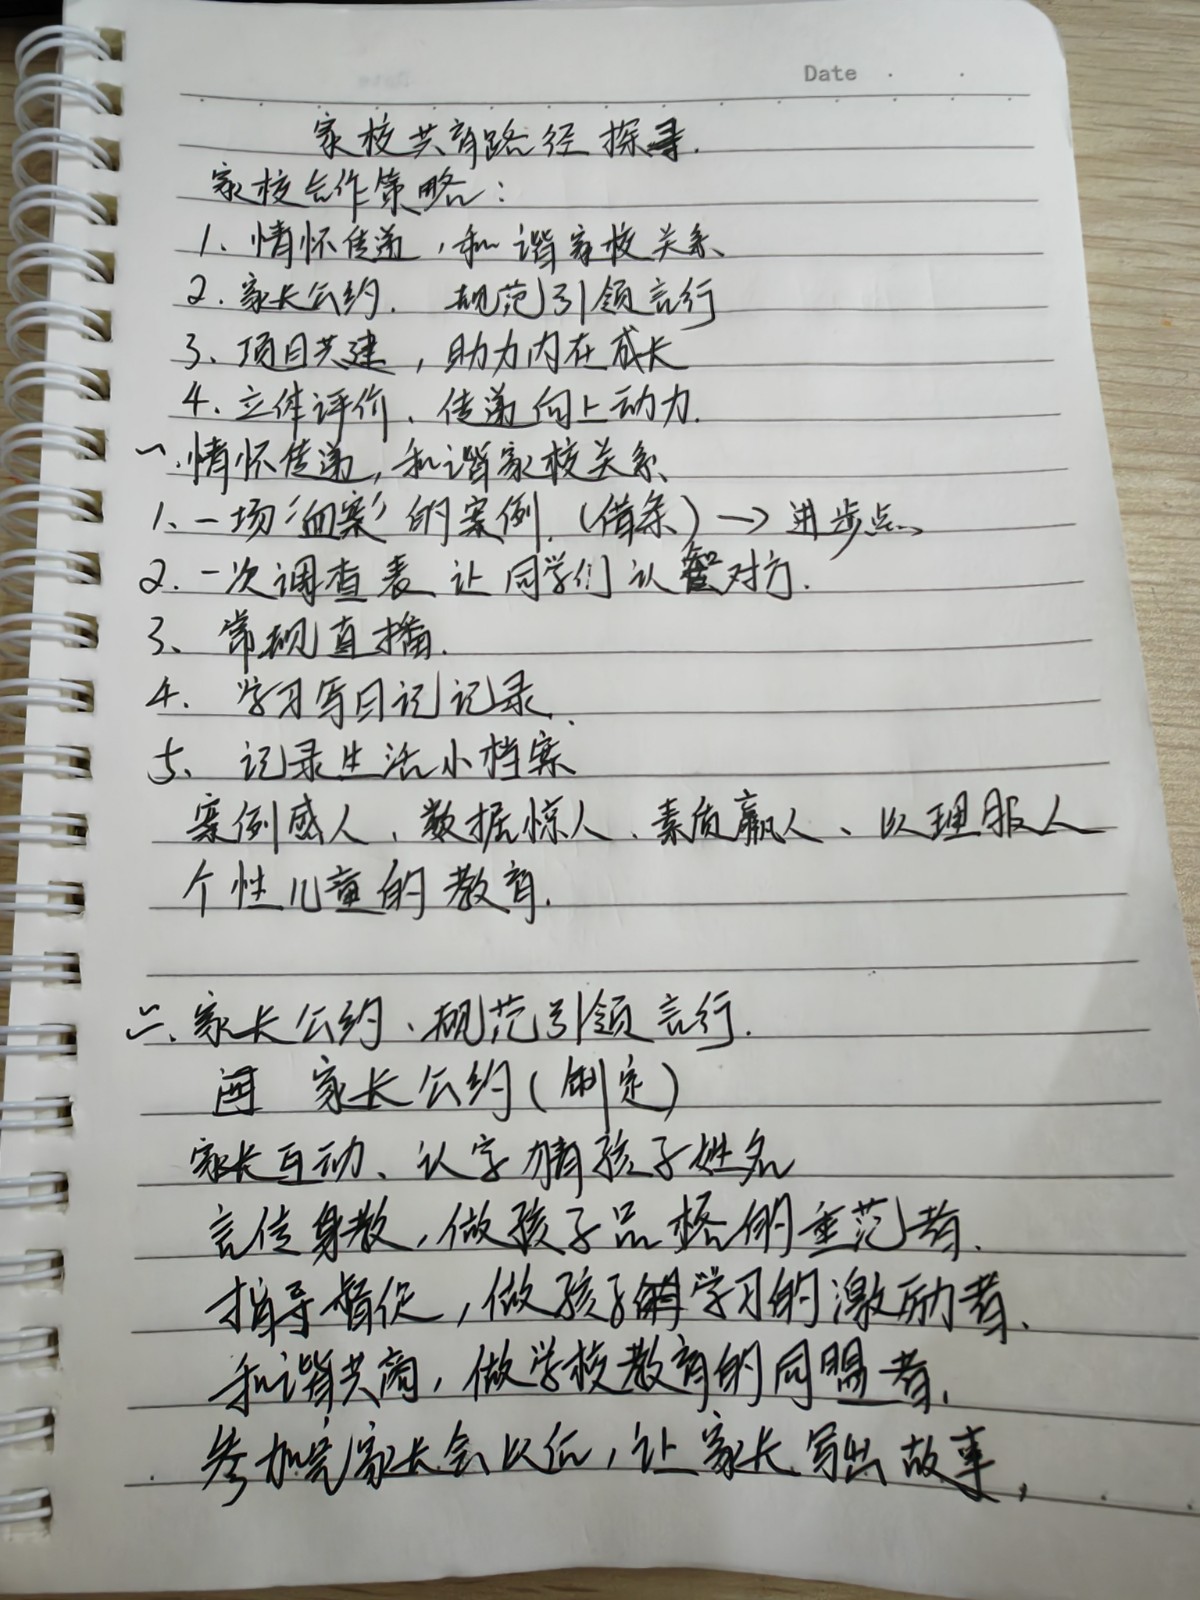 Date
家校共育路径探寻.
家校合作策略:
1、情怀传递,和谐家校关系
2.家长公约. 规范引领言行
3、项目共建,助力内在成长
4.立体评价、传递向上动力.
一.情怀传递,和谐家校关系
1、一场“血案”的案例.(借条)→进步点、
2.一次调查表 让同学们认 对方.
3、常规直播.
4.学习写日记记录.
5、记录生活小档案
案例感人、数据惊人、素质赢人、以理服人
个性儿童的教育.
二、家长公约、规范引领言行.
家长公约(制定)
家长互动、认字猜孩子姓名
言传身教,做孩子品格的垂范者.
指导督促,做孩子学习的激励者.
和谐共商,做学校教育的同盟者.
参加完家长会以后,让家长写出故事,